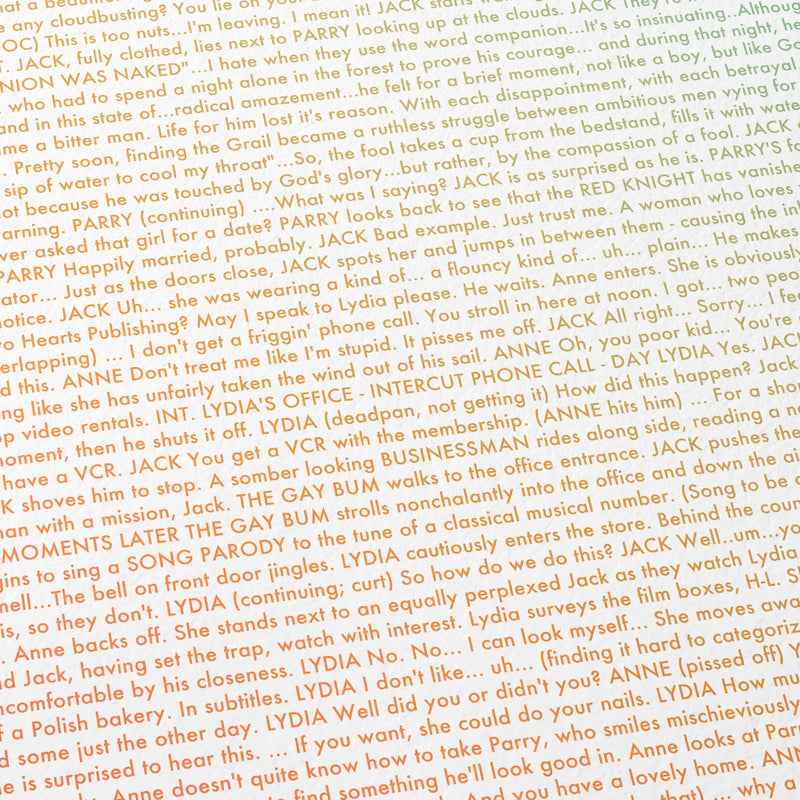 hat a beautiful
e any cloudbusting? You lie on your
OC) This is too nuts...I'm leaving. I mean it! JACK starts
T. JACK, fully clothed, lies next to PARRY looking up at the clouds. JACK They're
NION WAS NAKED"...I hate when they use the word companion...It's so insinuating...Althoug
who had to spend a night alone in the forest to prove his courage... and during that night, he
and in this state of...radical amazement...he felt for a brief moment, not like a boy, but like Go
me a bitter man. Life for him lost it's reason. With each disappointment, with each betrayal
.. Pretty soon, finding the Grail became a ruthless struggle between ambitious men vying for
sip of water to cool my throat"...So, the fool takes a cup from the bedstand, fills it with wate
ot because he was touched by God's glory...but rather, by the compassion of a fool. JACK
arning. PARRY (continuing) ....What was I saying? JACK is as surprised as he is. PARRY'S fa
ver asked that girl for a date? PARRY looks back to see that the RED KNIGHT has vanishe
PARRY Happily married, probably. JACK Bad example. Just trust me. A woman who loves
ator... Just as the doors close, JACK spots her and jumps in between them - causing the inh
notice. JACK Uh... she was wearing a kind of... a flouncy kind of... uh... plain... He makes
wo Hearts Publishing? May I speak to Lydia please. He waits. Anne enters. She is obviously
erlapping) ... I don't get a friggin' phone call. You stroll in here at noon. I got... two peop
d this. ANNE Don't treat me like I'm stupid. It pisses me off. JACK All right... Sorry... I fee
ng like she has unfairly taken the wind out of his sail. ANNE Oh, you poor kid... You're
op video rentals. INT. LYDIA'S OFFICE - INTERCUT PHONE CALL - DAY LYDIA Yes. JACK
moment, then he shuts it off. LYDIA (deadpan, not getting it) How did this happen? Jack
have a VCR. JACK You get a VCR with the membership. (ANNE hits him) ... For a shor
K shoves him to stop. A somber looking BUSINESSMAN rides along side, reading a ne
man with a mission, Jack. THE GAY BUM walks to the office entrance. JACK pushes the
MOMENTS LATER THE GAY BUM strolls nonchalantly into the office and down the ai
gins to sing a SONG PARODY to the tune of a classical musical number. (Song to be
nell...The bell on front door jingles. LYDIA cautiously enters the store. Behind the coun
is, so they don't. LYDIA (continuing; curt) So how do we do this? JACK Well...um...yo
. Anne backs off. She stands next to an equally perplexed Jack as they watch Lydia
nd Jack, having set the trap, watch with interest. Lydia surveys the film boxes, H-L. Sh
ncomfortable by his closeness. LYDIA No. No... I can look myself... She moves awa
f a Polish bakery. In subtitles. LYDIA I don't like... uh... (finding it hard to categoriz
d some just the other day. LYDIA Well did you or didn't you? ANNE (pissed off) Y
e is surprised to hear this. ... If you want, she could do your nails. LYDIA How mu
Anne doesn't quite know how to take Parry, who smiles mischievously
to find something he'll look good in. Anne looks at Parr
And you have a lovely home. ANN
that) ... why a